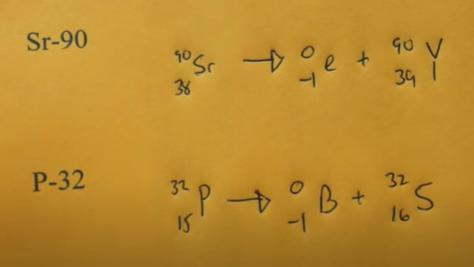 Sr-90
⁹⁰₃₈Sr → ⁰₋₁e + ⁹⁰₃₉Y
P-32
³²₁₅P → ⁰₋₁B + ³²₁₆S